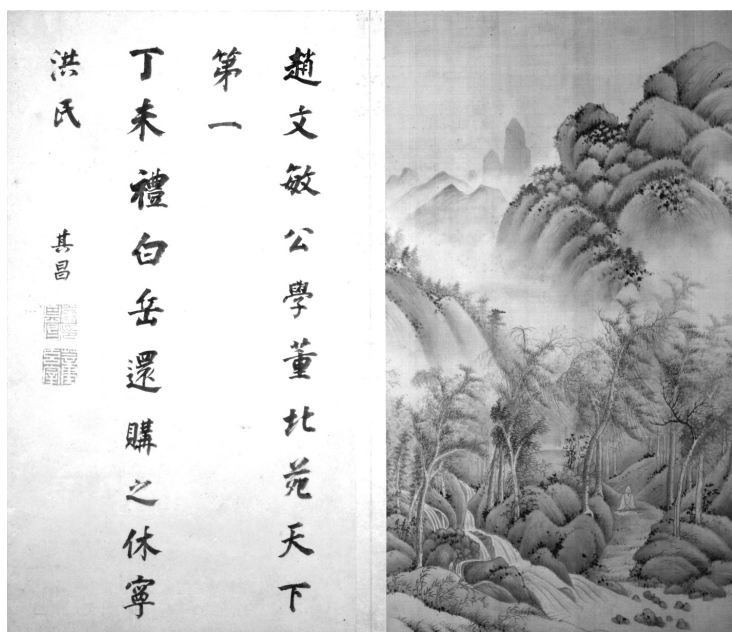 趙文敏公學董北苑天下
第一
丁未禮白岳還購之休寧
洪民
其昌